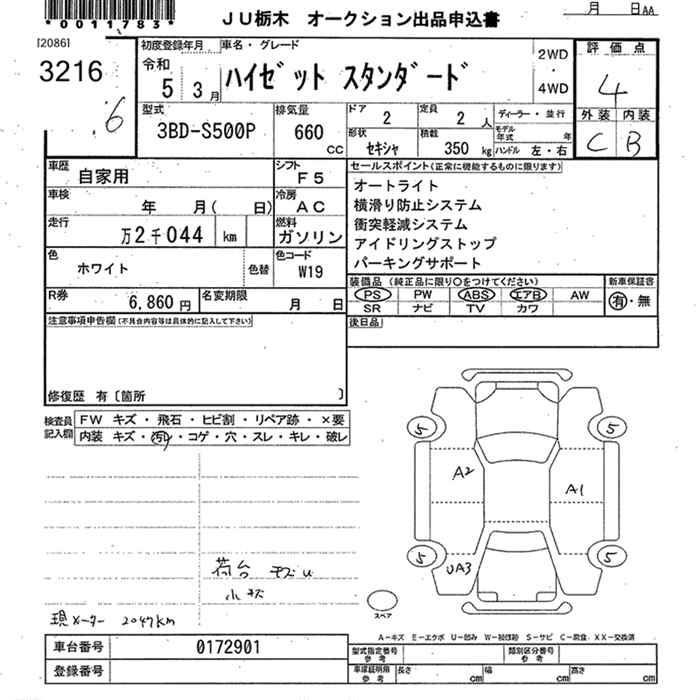 *0011783*
JU栃木 オークション出品申込書
月 日AA
[2086]
3216
6
初度登録年月
令和
5 3月
車名・グレード
ハイゼット スタンダード
2WD
・
4WD
評価点
4
外装 内装
C B
型式
3BD-S500P
排気量
660
CC
ドア
2
定員
2 人
ディーラー・並行
形状
セキシャ
積載
350 kg
モデル年式 年
ハンドル 左・右
車歴
自家用
シフト
F5
車検
年 月( 日)
冷房
AC
走行
万2千044 km
燃料
ガソリン
色
ホワイト
色替
色コード
W19
R券
6,860円
名変期限
月 日
セールスポイント(正常に機能するものに限ります)
オートライト
横滑り防止システム
衝突軽減システム
アイドリングストップ
パーキングサポート
装備品(純正品に限り○をつけてください)
新車保証書
PS PW ABS エアB AW
有・無
SR ナビ TV カワ
後日品
注意事項申告欄(不具合内容等は具体的に記入して下さい)
修復歴 有〔箇所 〕
検査員
記入欄
FW キズ・飛石・ヒビ割・リペア跡・×要
内装 キズ・汚れ・コゲ・穴・スレ・キレ・破レ
5 5
A2
A1
5 5
UA3
荷台
小キズ
現メーター 2047km
スペア
A-キズ E-エクボ U-凹み W-補修跡 S-サビ C-腐食 XX-交換済
車台番号 0172901
登録番号
型式指定番号
参考
類別区分番号
参考
車庫証明用
参考
長さ cm 幅 cm 高さ cm